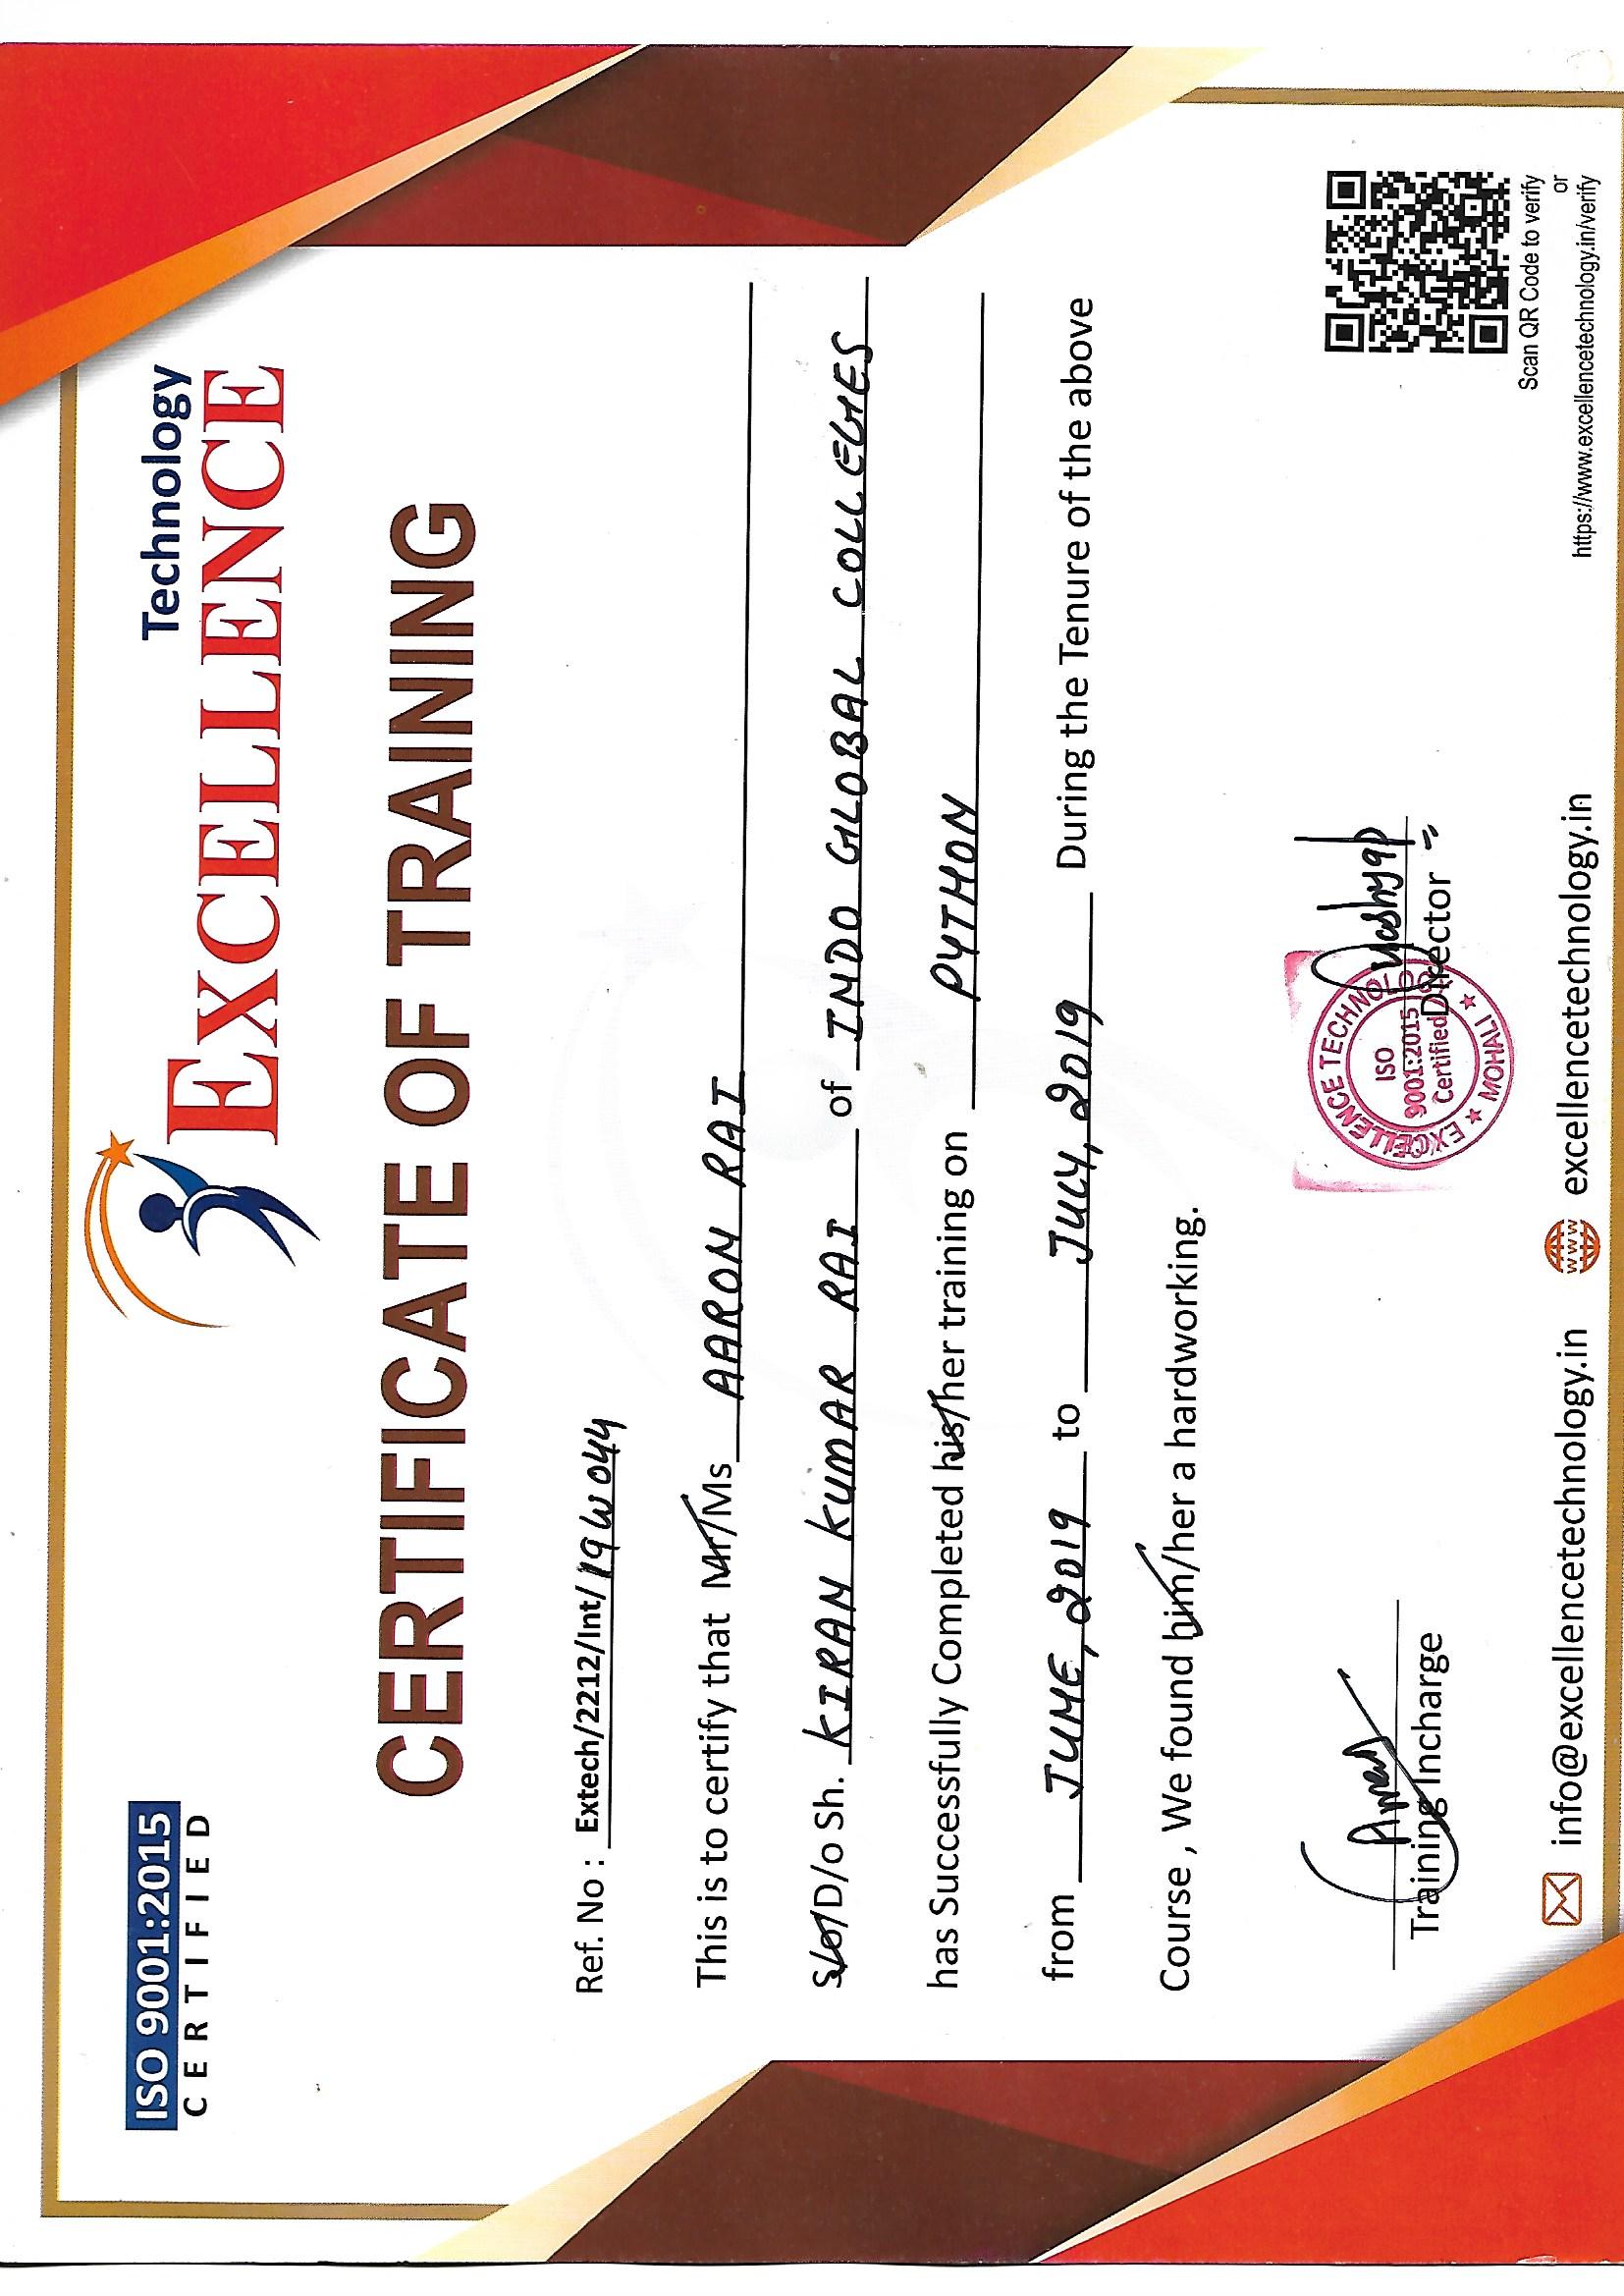 ISO 9001:2015
CERTIFIED
Technology
EXCELLENCE
CERTIFICATE OF TRAINING
Ref. No : Extech/2212/Int/19W044
This is to certify that Mr/Ms AARON RAI
S/o/D/o Sh. KIRAN KUMAR RAI of INDO GLOBAL COLLEGES
has Successfully Completed his/her training on PYTHON
from JUNE, 2019 to JULY, 2019 During the Tenure of the above
Course , We found him/her a hardworking.
Aman
Training Incharge
EXCELLENCE TECHNOLOGY
ISO
9001:2015
Certified
MOHALI
Director
Scan QR Code to verify
or
https://www.excellencetechnology.in/verify
info@excellencetechnology.in
www
excellencetechnology.in